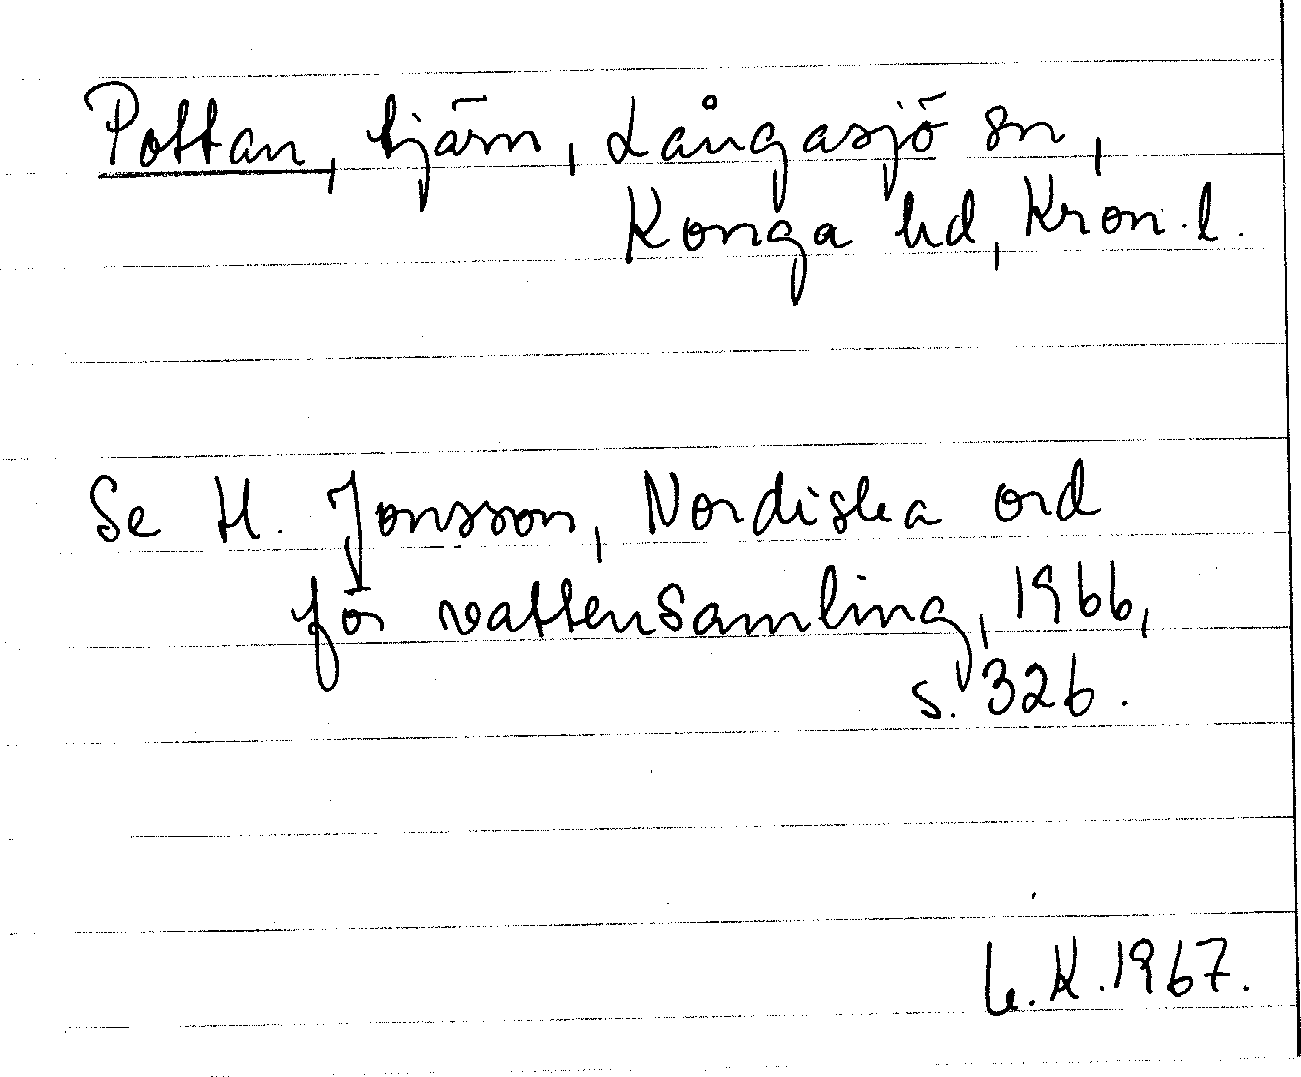 Pottan, tjärn, Långasjö sn,
Konga hd, Kron. l.
Se H. Jonsson, Nordiska ord
för vattensamling, 1966,
s. 326.
K. 1967.